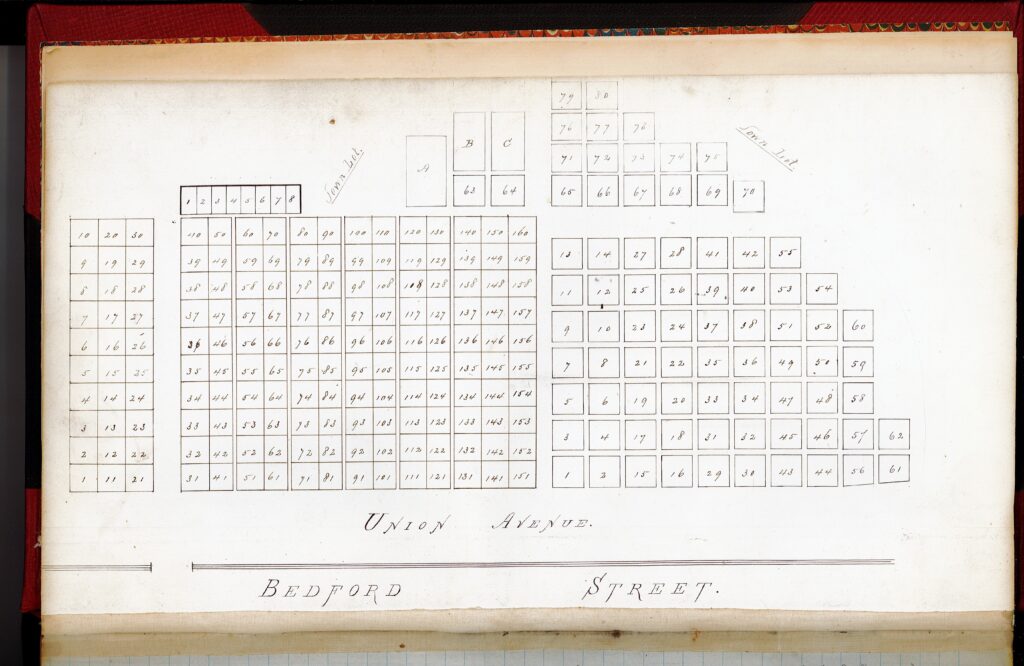 79 80
76 77 78
B C
A
71 72 73 74 75
Town Lot.
Town Lot
63 64
65 66 67 68 69 70
1 2 3 4 5 6 7 8
10 20 30 40 50 60 70 80 90 100 110 120 130 140 150 160
13 14 27 28 41 42 55
9 19 29 39 49 59 69 79 89 99 109 119 129 139 149 159
8 18 28 38 48 58 68 78 88 98 108 118 128 138 148 158
11 12 25 26 39 40 53 54
7 17 27 37 47 57 67 77 87 97 107 117 127 137 147 157
9 10 23 24 37 38 51 52 60
6 16 26 36 46 56 66 76 86 96 106 116 126 136 146 156
5 15 25 35 45 55 65 75 85 95 105 115 125 135 145 155
7 8 21 22 35 36 49 50 59
4 14 24 34 44 54 64 74 84 94 104 114 124 134 144 154
5 6 19 20 33 34 47 48 58
3 13 23 33 43 53 63 73 83 93 103 113 123 133 143 153
3 4 17 18 31 32 45 46 57 62
2 12 22 32 42 52 62 72 82 92 102 112 122 132 142 152
1 11 21 31 41 51 61 71 81 91 101 111 121 131 141 151
1 2 15 16 29 30 43 44 56 61
UNION AVENUE.
BEDFORD STREET.